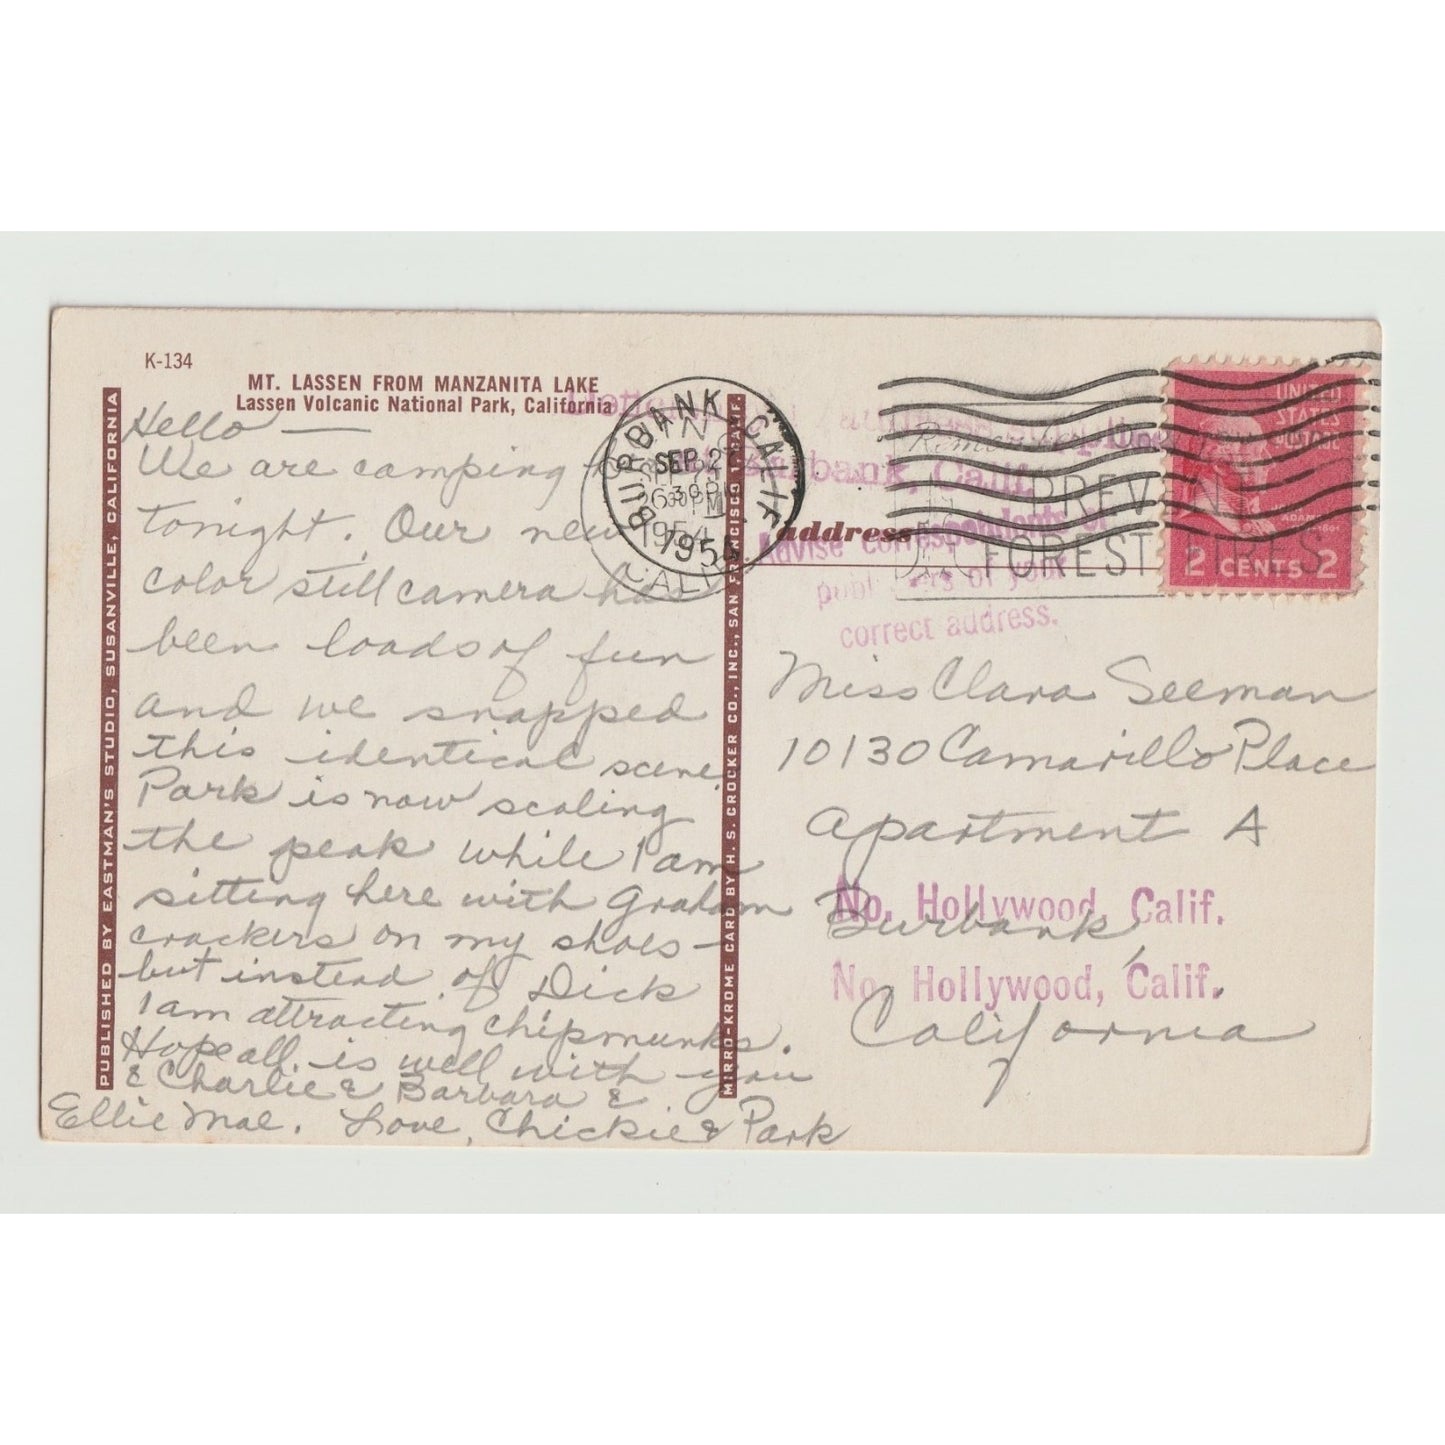 K-134
MT. LASSEN FROM MANZANITA LAKE
Lassen Volcanic National Park, California
PUBLISHED BY EASTMAN'S STUDIO, SUSANVILLE, CALIFORNIA
Hello —
We are camping
tonight. Our new
color still camera has
been loads of fun
and we snapped
this identical scene.
Park is now scaling
the peak while I am
sitting here with Graham
crackers on my shoes –
but instead of Dick
I am attracting chipmunks.
Hope all is well with you
& Charlie & Barbara &
Ellie Mae. Love, Chickie & Park
MIRRO-KROME CARD BY H. S. CROCKER CO., INC., SAN FRANCISCO 1, CALIF.
BURBANK CALIF.
SEP 2
630 PM
1954
CALIF
Burbank, Calif.
address
Advise correspondents or
publishers of your
correct address.
PREVENT
FOREST FIRES
UNITED
STATES
POSTAGE
ADAMS
2 CENTS 2
Miss Clara Seeman
10130 Camarillo Place
Apartment A
No. Hollywood, Calif.
Burbank,
No. Hollywood, Calif.
California